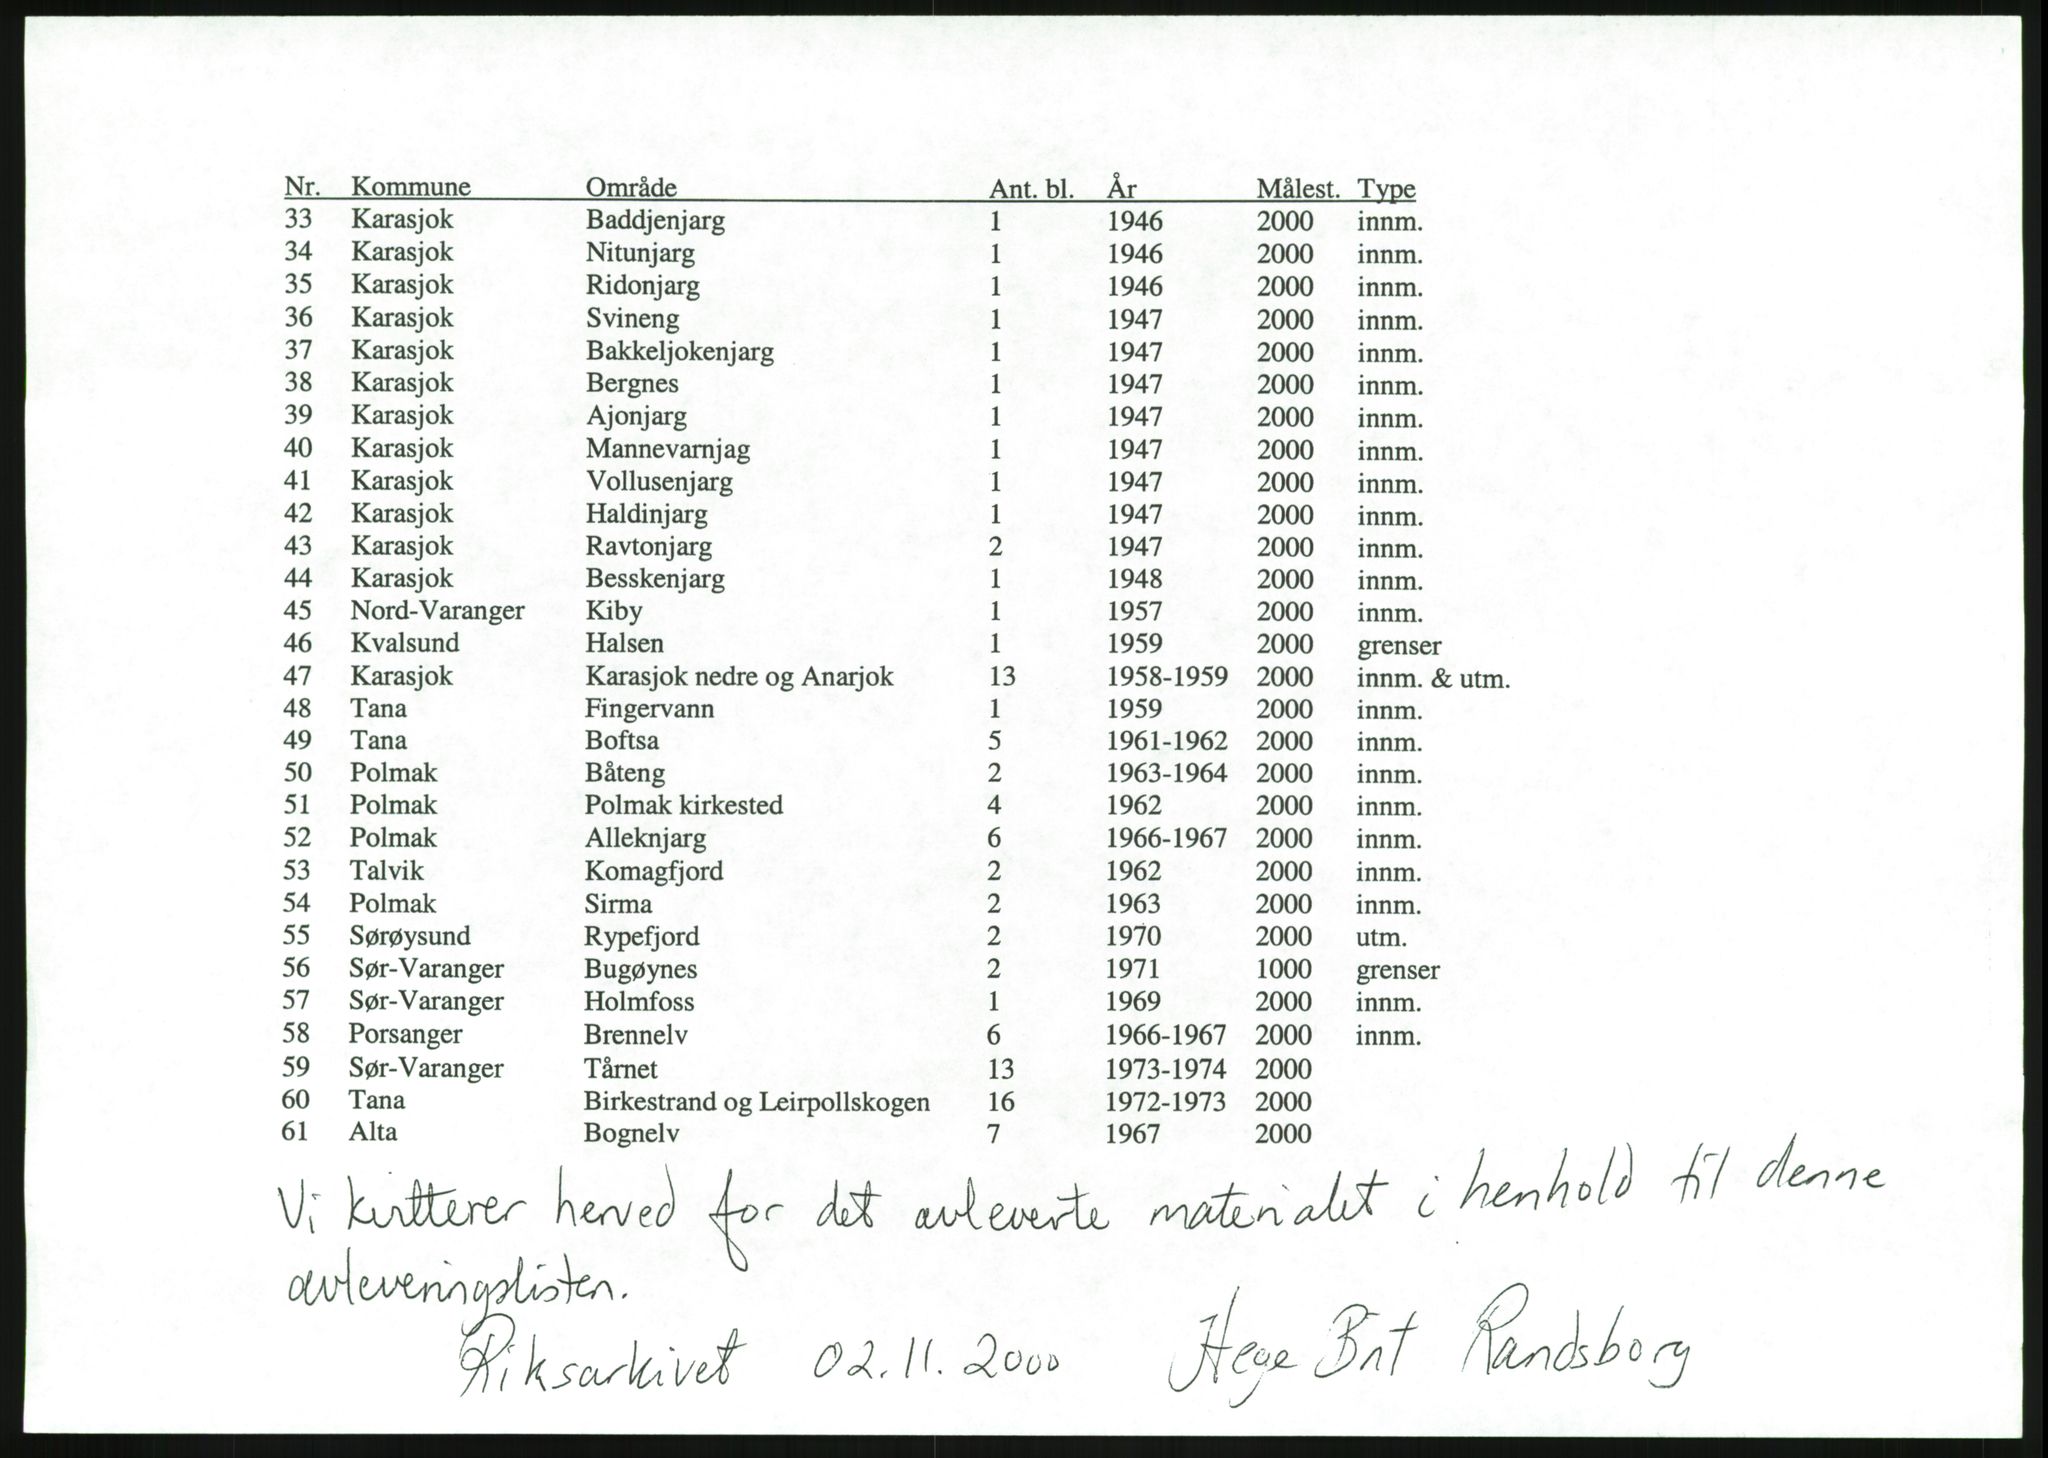 Nr. Kommune Område Ant. bl. År Målest. Type
33 Karasjok Baddjenjarg 1 1946 2000 innm.
34 Karasjok Nitunjarg 1 1946 2000 innm.
35 Karasjok Ridonjarg 1 1946 2000 innm.
36 Karasjok Svineng 1 1947 2000 innm.
37 Karasjok Bakkeljokenjarg 1 1947 2000 innm.
38 Karasjok Bergnes 1 1947 2000 innm.
39 Karasjok Ajonjarg 1 1947 2000 innm.
40 Karasjok Mannevarnjag 1 1947 2000 innm.
41 Karasjok Vollusenjarg 1 1947 2000 innm.
42 Karasjok Haldinjarg 1 1947 2000 innm.
43 Karasjok Ravtonjarg 2 1947 2000 innm.
44 Karasjok Besskenjarg 1 1948 2000 innm.
45 Nord-Varanger Kiby 1 1957 2000 innm.
46 Kvalsund Halsen 1 1959 2000 grenser
47 Karasjok Karasjok nedre og Anarjok 13 1958-1959 2000 innm. & utm.
48 Tana Fingervann 1 1959 2000 innm.
49 Tana Boftsa 5 1961-1962 2000 innm.
50 Polmak Båteng 2 1963-1964 2000 innm.
51 Polmak Polmak kirkested 4 1962 2000 innm.
52 Polmak Alleknjarg 6 1966-1967 2000 innm.
53 Talvik Komagfjord 2 1962 2000 innm.
54 Polmak Sirma 2 1963 2000 innm.
55 Sørøysund Rypefjord 2 1970 2000 utm.
56 Sør-Varanger Bugøynes 2 1971 1000 grenser
57 Sør-Varanger Holmfoss 1 1969 2000 innm.
58 Porsanger Brennelv 6 1966-1967 2000 innm.
59 Sør-Varanger Tårnet 13 1973-1974 2000
60 Tana Birkestrand og Leirpollskogen 16 1972-1973 2000
61 Alta Bognelv 7 1967 2000
Vi kvitterer herved for det avleverte materialet i henhold til denne
avleveringslisten.
Riksarkivet 02.11.2000 Hege Randsborg